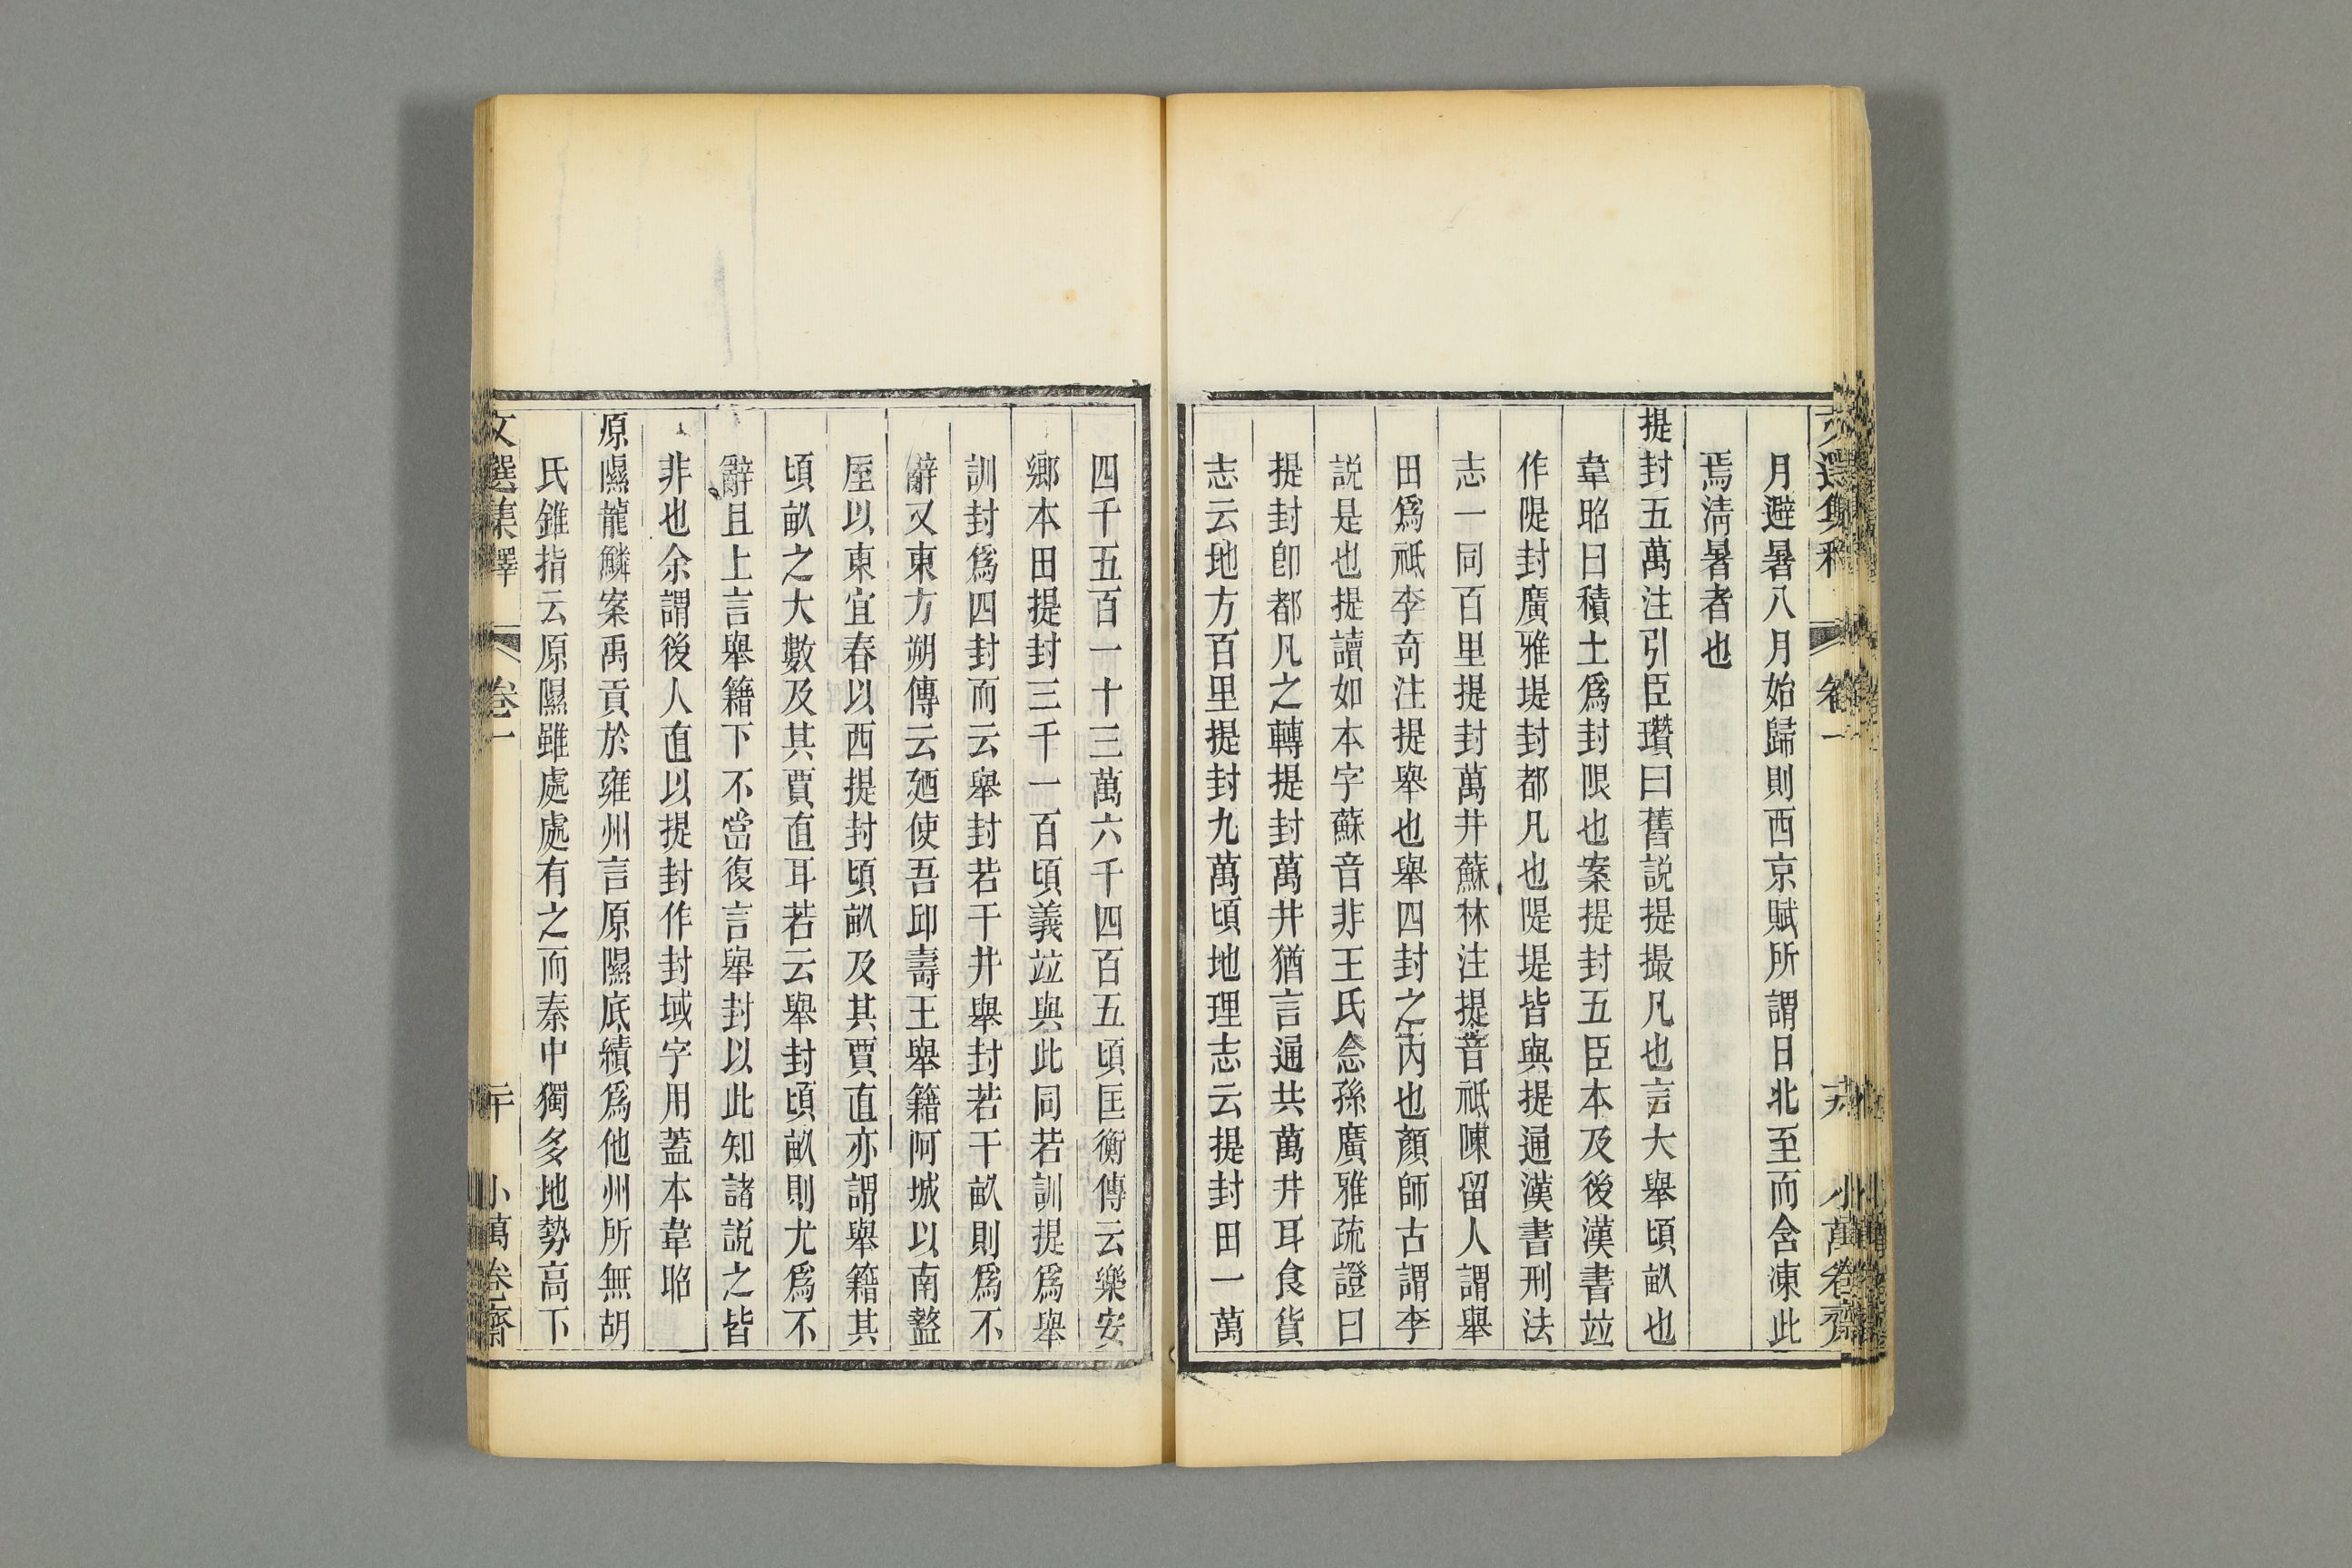 月避暑八月始歸則西京賦所謂日北至而含凍此
焉淸暑者也
提封五萬注引臣瓚曰舊説提撮凡也言大舉頃畝也
韋昭曰積土爲封限也案提封五臣本及後漢書竝
作隄封廣雅堤封都凡也隄堤皆與提通漢書刑法
志一同百里提封萬井蘇林注提音祗陳留人謂舉
田爲祗李奇注提舉也舉四封之内也顏師古謂李
説是也提讀如本字蘇音非王氏念孫廣雅疏證曰
提封卽都凡之轉提封萬井猶言通共萬井耳食貨
志云地方百里提封九萬頃地理志云提封田一萬
四千五百一十三萬六千四百五頃匡衡傳云樂安
鄉本田提封三千一百頃義竝與此同若訓提爲舉
訓封爲四封而云舉封若干井舉封若干畝則爲不
辭又東方朔傳云廼使吾邱壽王舉籍阿城以南盩
厔以東宜春以西提封頃畝及其賈直亦謂舉籍其
頃畝之大數及其賈直耳若云舉封頃畝則尤爲不
辭且上言舉籍下不當復言舉封以此知諸説之皆
非也余謂後人直以提封作封域字用蓋本韋昭
原隰龍鱗案禹貢於雍州言原隰底績爲他州所無胡
氏錐指云原隰雖處處有之而秦中獨多地勢高下
文選集釋 卷一 二十 小萬卷齋